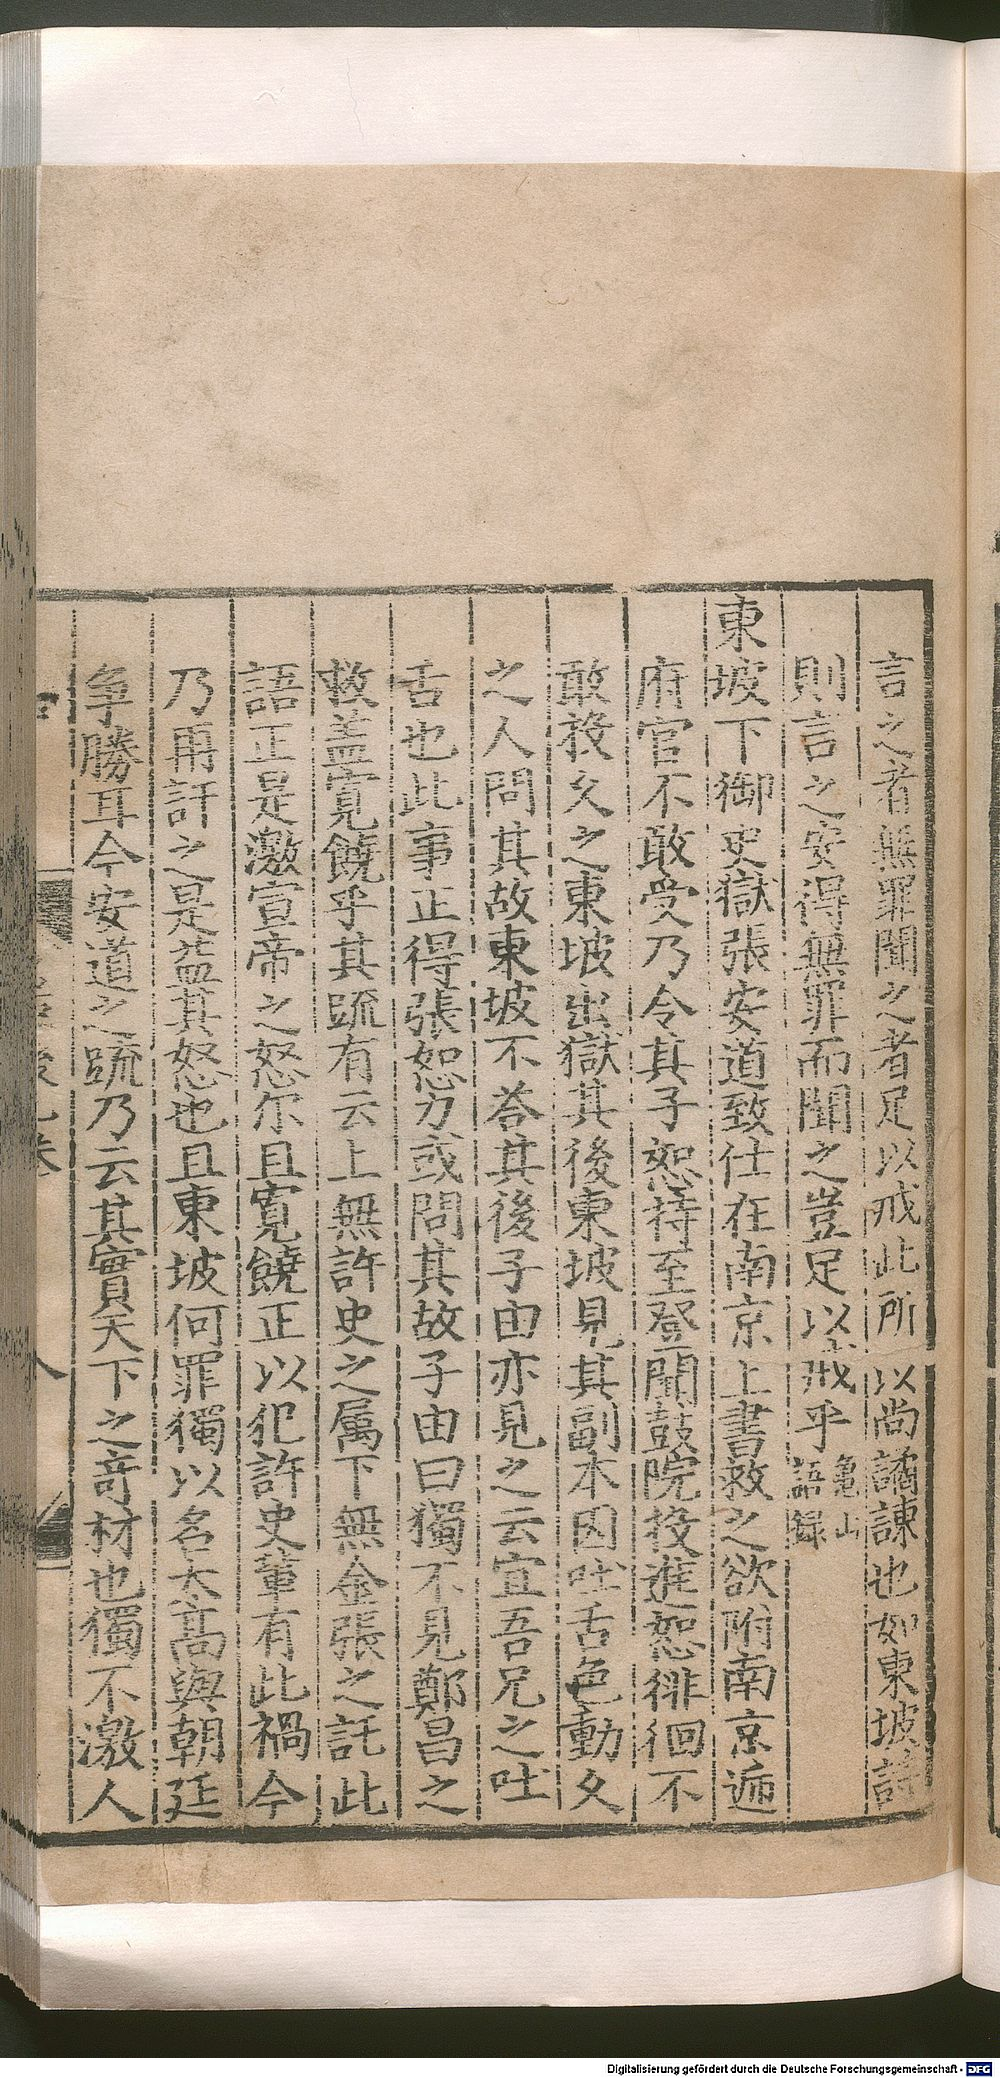 言之者無罪聞之者足以戒此所以尚譎諫也如東坡詩
則言之安得無罪而聞之豈足以戒乎龜山語録
東坡下御史獄張安道致仕在南京上書救之欲附南京遞
府官不敢受乃令其子恕持至登聞鼓院投進恕徘徊不
敢投久之東坡出獄其後東坡見其副本因吐舌色動久
之人問其故東坡不荅其後子由亦見之云宜吾兄之吐
舌也此事正得張恕力或問其故子由曰獨不見鄭昌之
救盖寛饒乎其䟽有云上無許史之属下無金張之託此
語正是激宣帝之怒尔且寛饒正以犯許史軰有此禍今
乃再訐之是益其怒也且東坡何罪獨以名太高與朝廷
爭勝耳今安道之䟽乃云其實天下之竒材也獨不激人
Digitalisierung gefördert durch die Deutsche Forschungsgemeinschaft - DFG